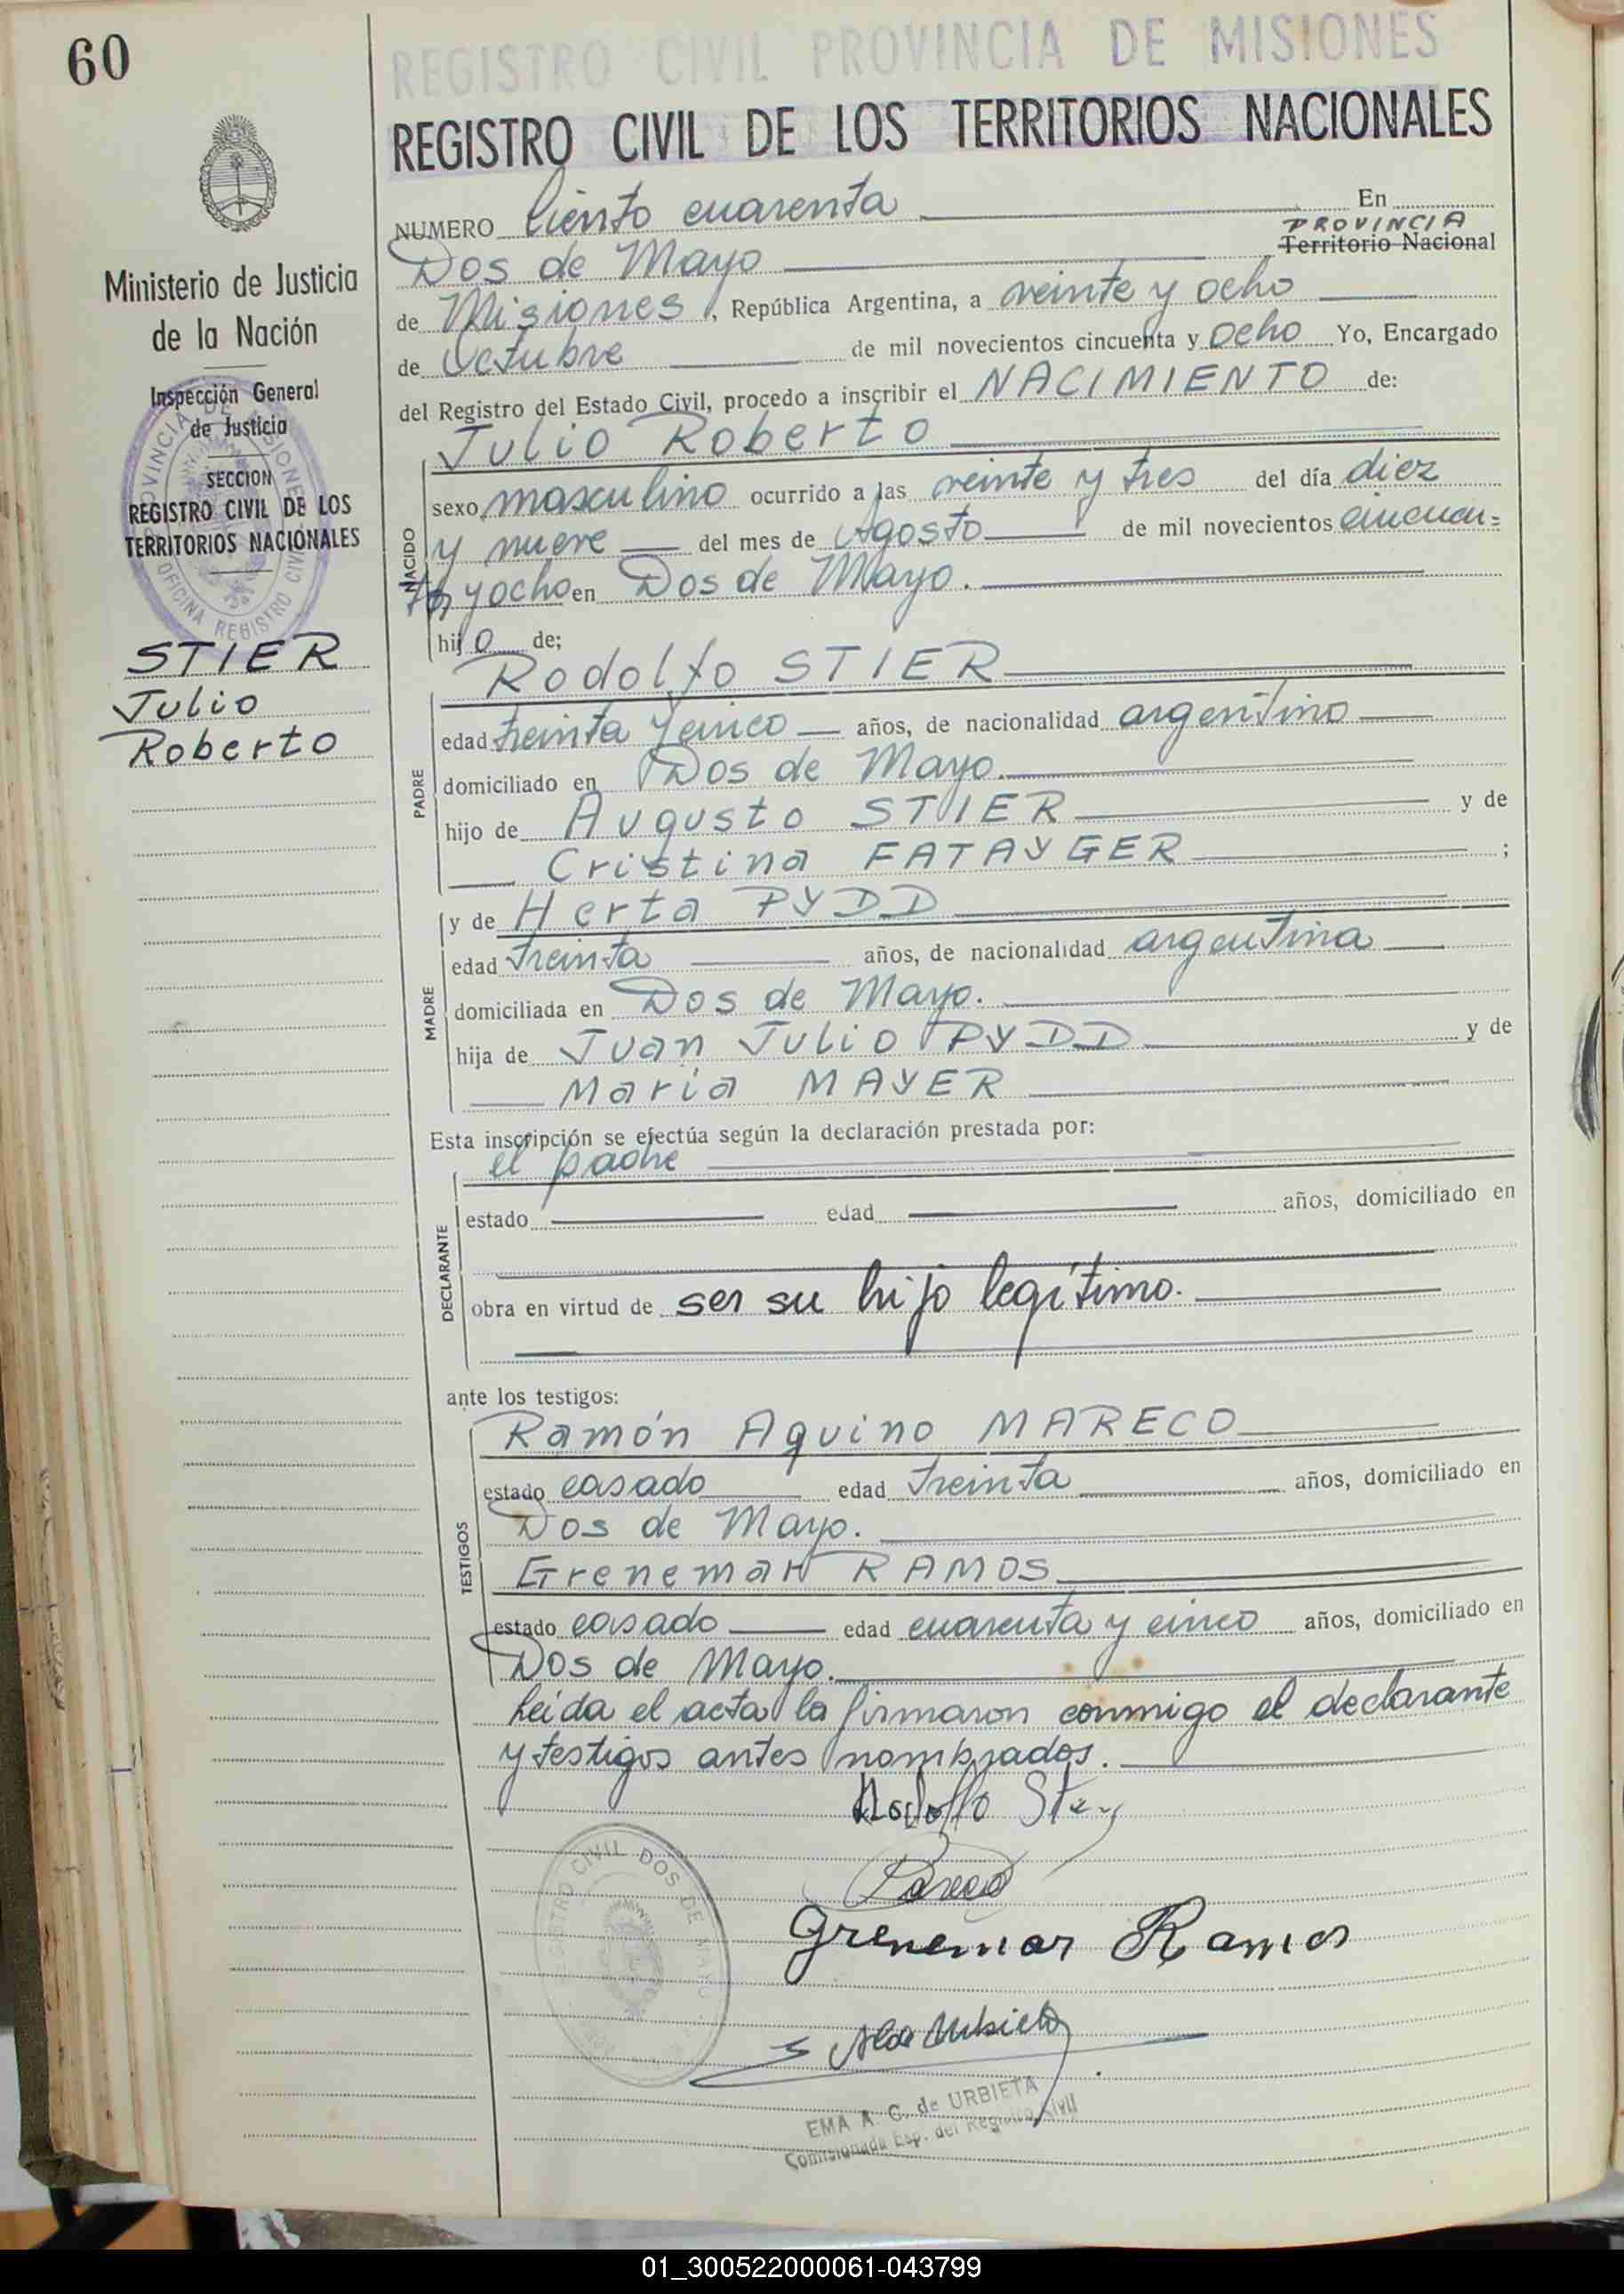 60
REGISTRO CIVIL PROVINCIA DE MISIONES
REGISTRO CIVIL DE LOS TERRITORIOS NACIONALES
Ministerio de Justicia
de la Nación
Inspección General
de Justicia
SECCION
REGISTRO CIVIL DE LOS
TERRITORIOS NACIONALES
PROVINCIA DE MISIONES
OFICINA REGISTRO CIVIL
STIER
Julio
Roberto
NUMERO Ciento cuarenta En
PROVINCIA
Dos de Mayo Territorio Nacional
de Misiones, República Argentina, a veinte y ocho
de Octubre de mil novecientos cincuenta y ocho Yo, Encargado
del Registro del Estado Civil, procedo a inscribir el NACIMIENTO de:
Julio Roberto
NACIDO
sexo masculino ocurrido a las veinte y tres del día diez
y nueve del mes de Agosto de mil novecientos cincuen=
ta y ocho en Dos de Mayo.
hijo de;
Rodolfo STIER
PADRE
edad treinta y cinco años, de nacionalidad argentino
domiciliado en Dos de Mayo.
hijo de Augusto STIER y de
Cristina FATAYGER ;
y de Herta PYDD
MADRE
edad treinta años, de nacionalidad argentina
domiciliada en Dos de Mayo.
hija de Juan Julio PYDD y de
Maria MAYER
Esta inscripción se efectúa según la declaración prestada por:
el padre
DECLARANTE
estado edad años, domiciliado en
obra en virtud de ser su hijo legítimo.
ante los testigos:
Ramón Aquino MARECO
TESTIGOS
estado casado edad treinta años, domiciliado en
Dos de Mayo.
Grenemar RAMOS
estado casado edad cuarenta y cinco años, domiciliado en
Dos de Mayo.
Leida el acta la firmaron conmigo el declarante
y testigos antes nombrados.
Rodolfo
Grenemar Ramos
REGISTRO CIVIL DOS DE MAYO
EMA A. C. de URBIETA
Comisionada Esp. del Registro Civil
01_300522000061-043799